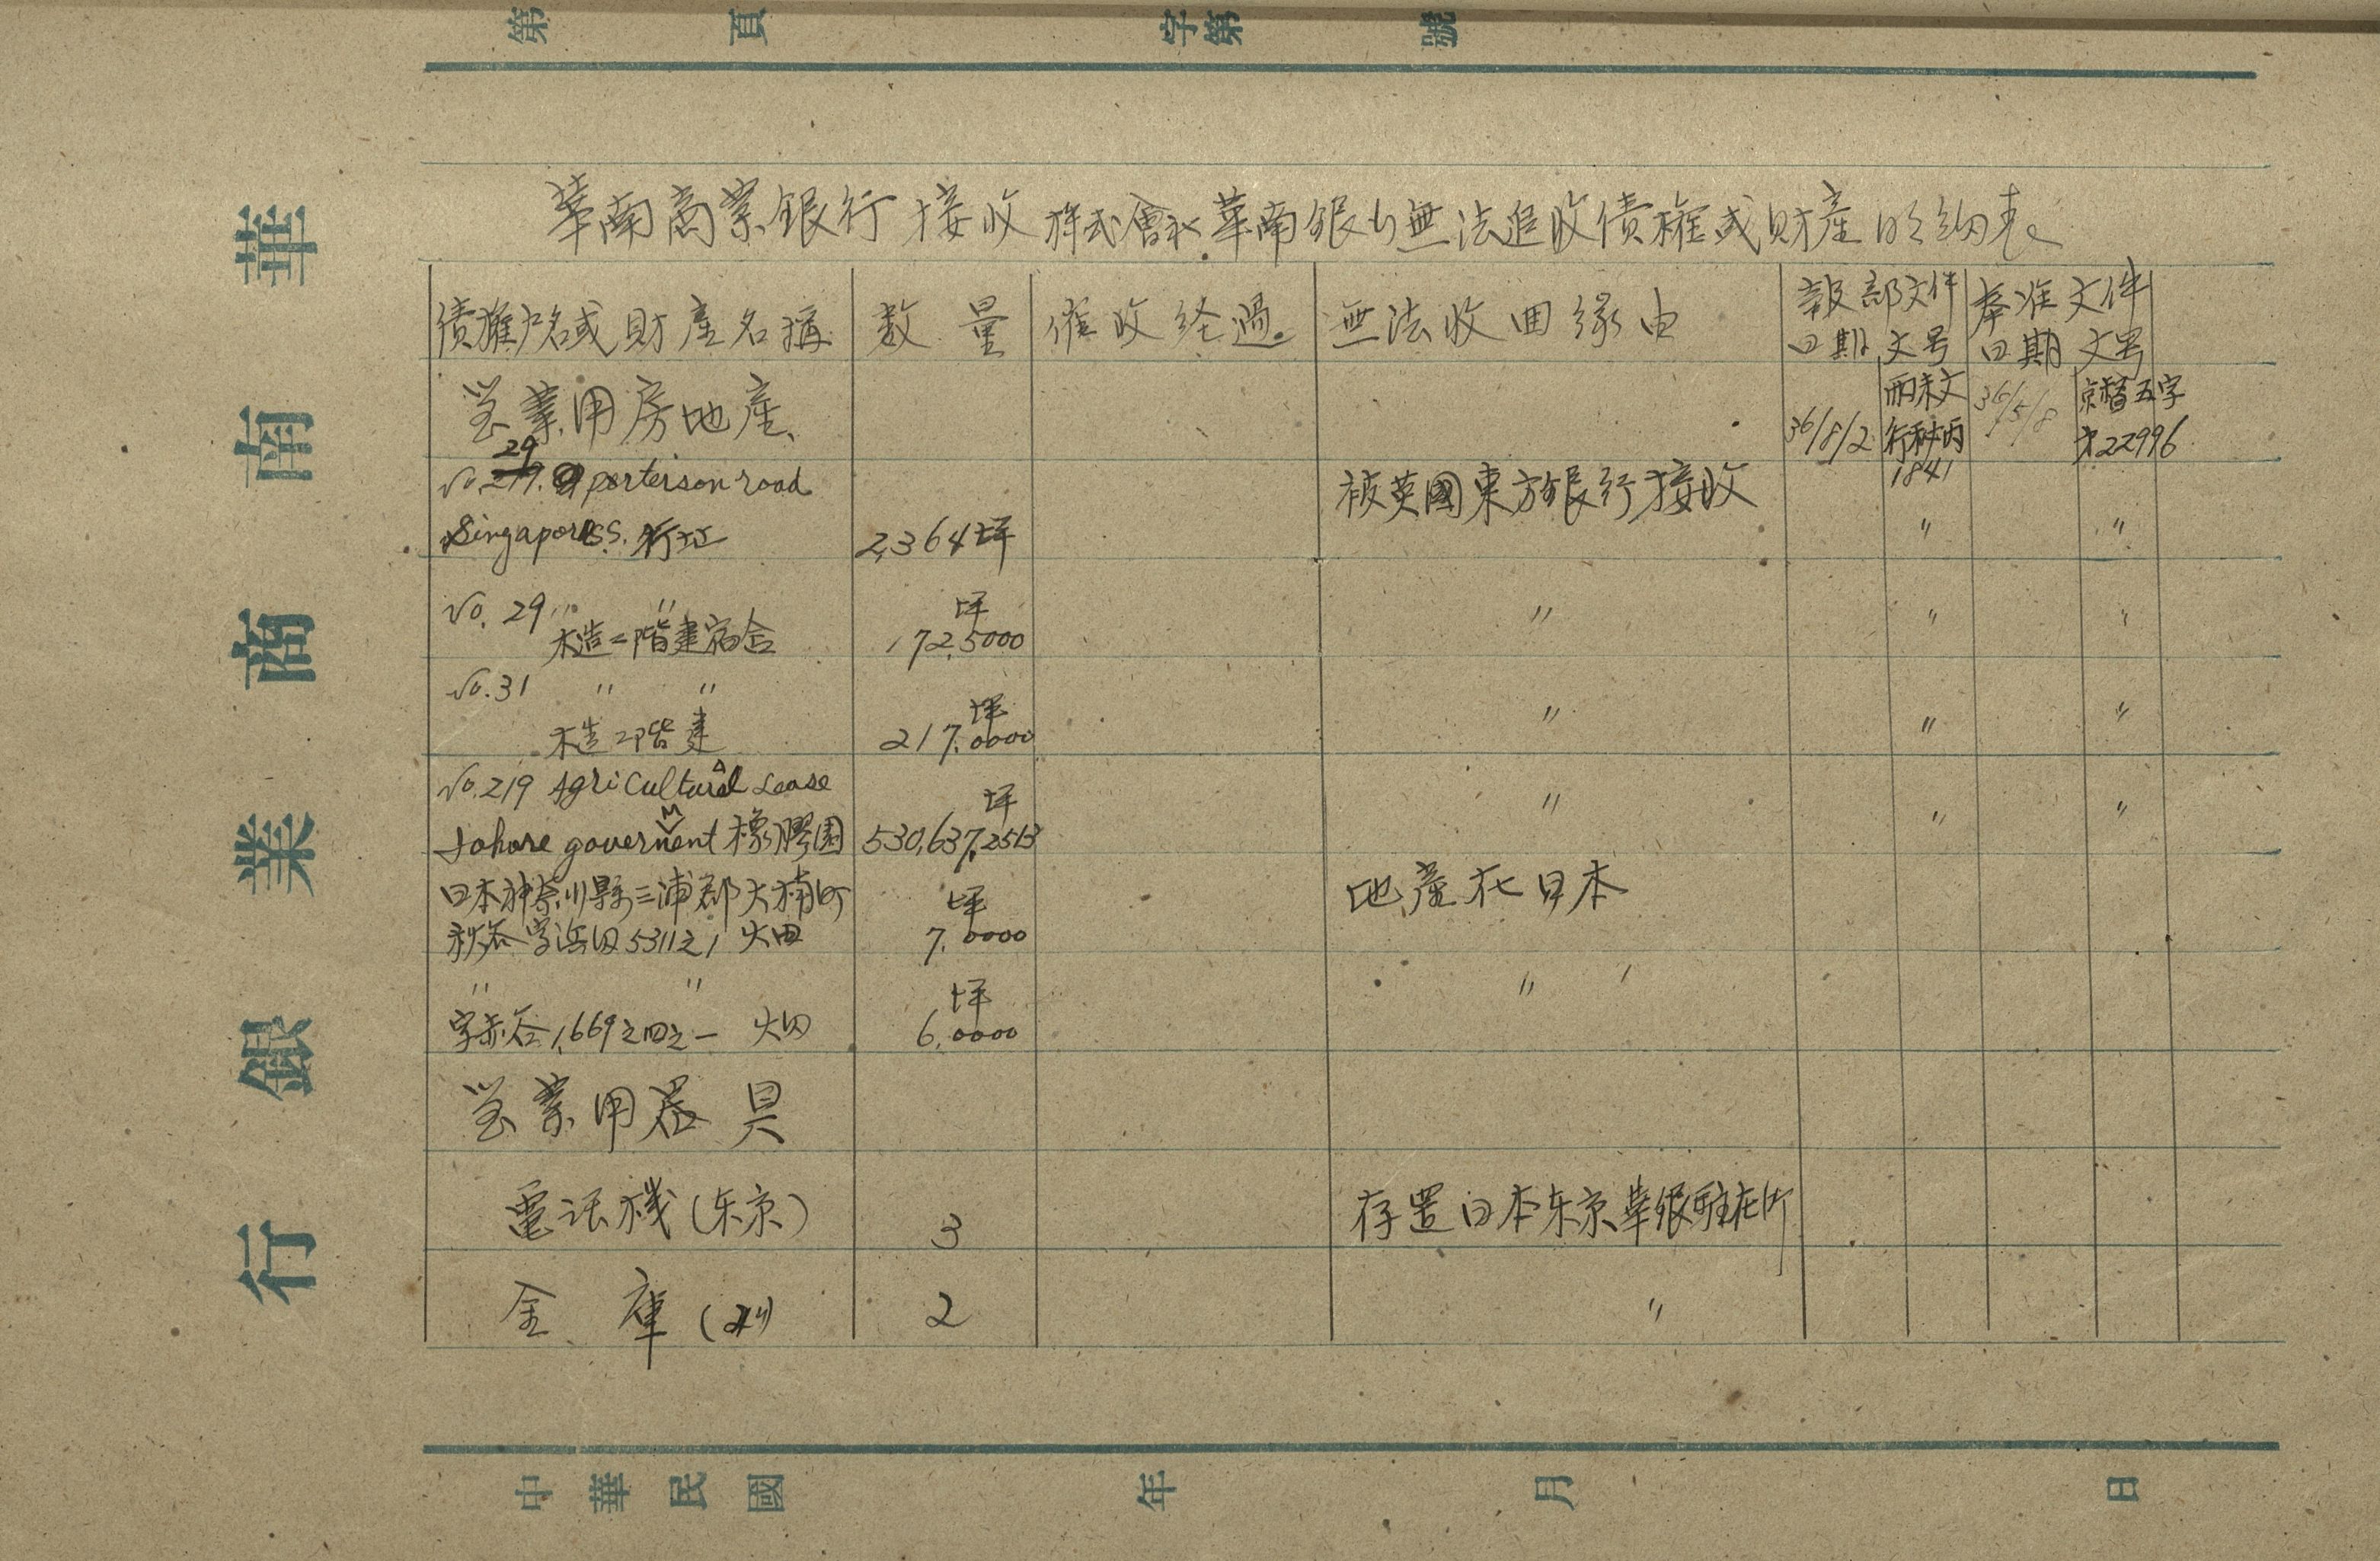 第 頁 字第 號
華南商業銀行
華南商業銀行接收株式會社華南銀行無法追收債權或財產明細表
債權戶名或財產名稱 数量 催收経過 無法收回緣由 報部文件 奉准文件
日期 文号 日期 文号
営業用房地產 36/8/2 行秘丙 1841 36/5/8 京 五字 22996
29
No. porterson road 被英國東方銀行接收
Singapore S.S. 行址 2,364坪 〃 〃
No. 29 〃 〃 坪 〃 〃 〃
木造二階建宿舍 172.5000
No.31 〃 〃 坪 〃 〃 〃
木造二階建 217.0000
No.219 Agricultural Lease 坪 〃 〃 〃
Johore government 橡膠園 530,637.2513
日本神奈川縣三浦郡大楠町 坪 地產在日本
秋谷字浜田5311之1 火田 7.0000
〃 〃 坪 〃
字赤谷1,669之四之一 火田 6.0000
営業用器具
電話機(东京) 3 存置日本东京華銀駐在所
金庫 2 〃
中華民國 年 月 日